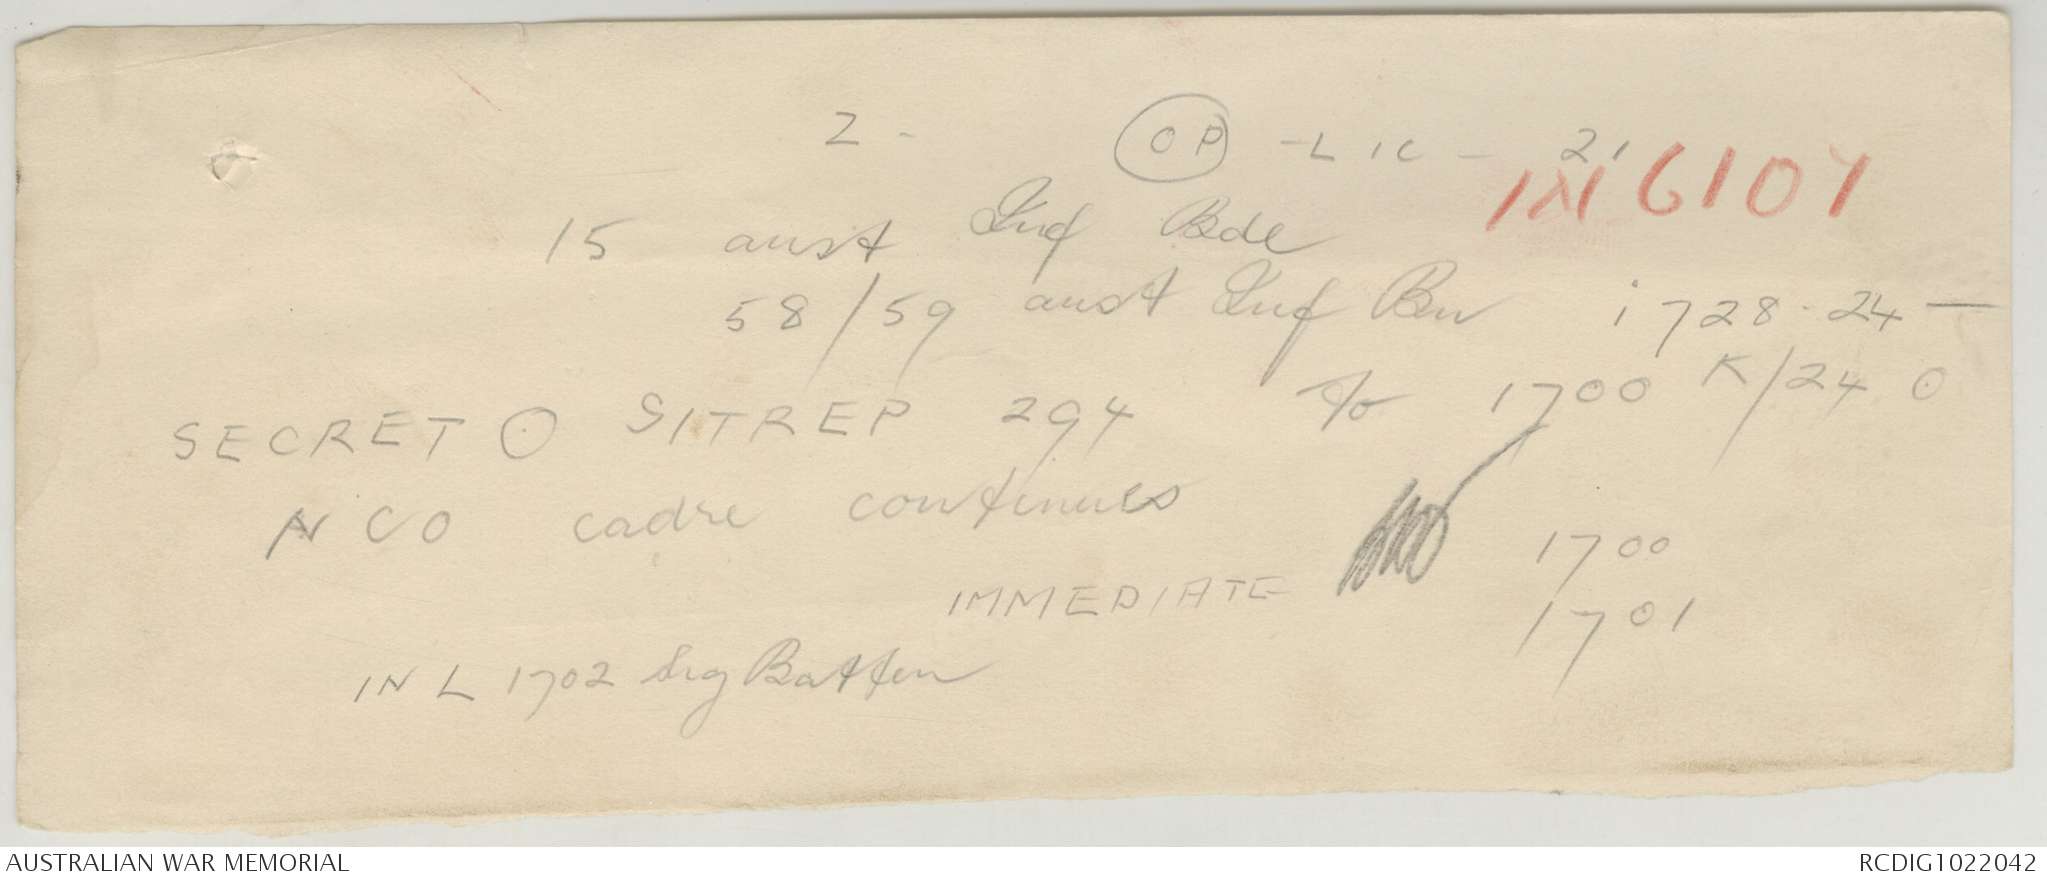 Z - OP - L IC - 21
IN 6107
15 aust Inf Bde
58/59 aust Inf Bn i 728 . 24 —
SECRET O SITREP 294 To 1700 K/24 O
NCO cadre continues
1700
IMMEDIATE
1701
IN L 1702 Sig Batten
AUSTRALIAN WAR MEMORIAL RCDIG1022042